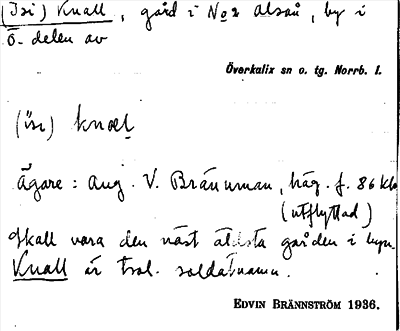 (Isi) Knall, gård i No 2 Alsån, by i
ö. delen av
Överkalix sn o. tg. Norrb. l.
(isi) knal
Ägare: Aug. V. Brännman, häg. f. 86 kla
(utflyttad)
Skall vara den näst äldsta gården i byn.
Knall är trol. soldatnamn.
EDVIN BRÄNNSTRÖM 1936.